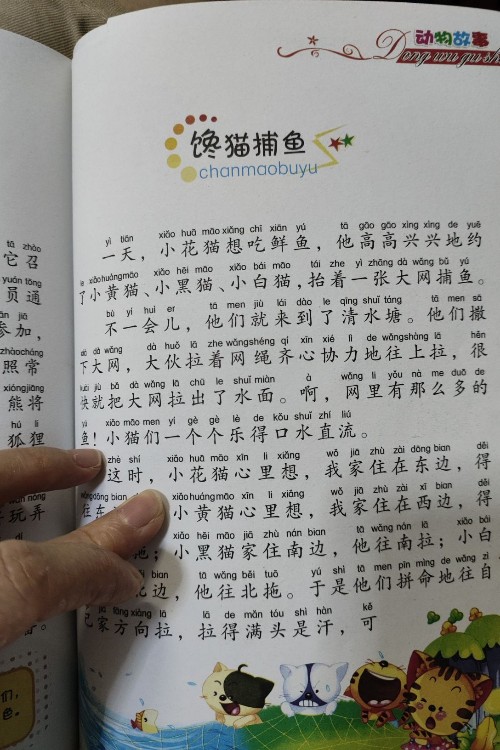 动物故事
Dong wu gu sh
馋猫捕鱼
chanmaobuyu
yì tiān xiǎo huā māo xiǎng chī xiān yú tā gāo gāo xìng xìng de yuē
一天，小花猫想吃鲜鱼，他高高兴兴地约
le xiǎohuángmāo xiǎo hēi māo xiǎo bái māo tái zhe yì zhāng dà wǎng bǔ yú
了小黄猫、小黑猫、小白猫，抬着一张大网捕鱼。
bù yí huì er tā men jiù lái dào le qīng shuǐ táng tā men sā
不一会儿，他们就来到了清水塘。他们撒
dà wǎng dà huǒ lā zhe wǎngshéng qí xīn xié lì de wǎngshàng lā hěn
下大网，大伙拉着网绳齐心协力地往上拉，很
kuài jiù bǎ dà wǎng lā chū le shuǐ miàn à wǎng li yǒu nà me duō de
快就把大网拉出了水面。啊，网里有那么多的
xiǎo māo men yí gè gè lè de kǒu shuǐ zhí liú
鱼！小猫们一个个乐得口水直流。
zhè shí xiǎo huā māo xīn li xiǎng wǒ jiā zhù zài dōng bian děi
这时，小花猫心里想，我家住在东边，得
wǎng dōng bian xiǎo huáng māo xīn li xiǎng wǒ jiā zhù zài xī bian děi
往东 小黄猫心里想，我家住在西边，得
xiǎo hēi māo jiā zhù nán bian tā wǎng nán lā xiǎo bái
拖；小黑猫家住南边，他往南拉；小白
bian tā wǎng běi tuō yú shì tā men pīn mìng de wǎng zì
北边，他往北拖。于是他们拼命地往自
jǐ jiā fāng xiàng lā lā de mǎn tóu shì hàn kě
己家方向拉，拉得满头是汗，可
tā zhào
它召
yuán tōng
员通
jiā
参加，
zhàocháng
照常
xióngjiāng
熊将
hú li
狐狸
nòng
玩弄
们，
色。